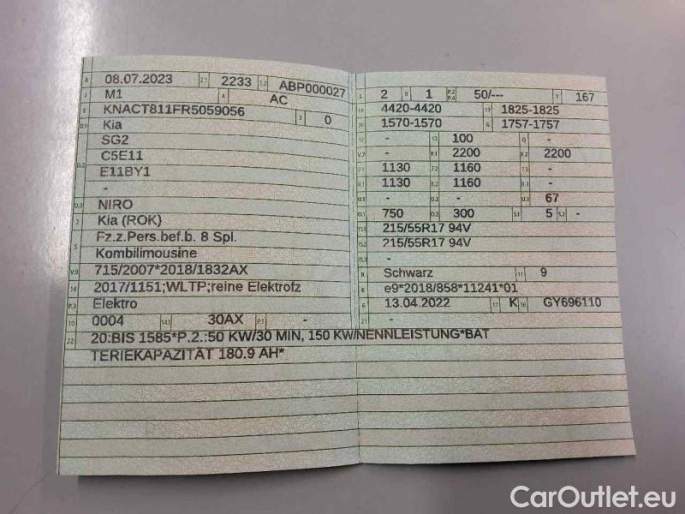 08.07.2023 2233 ABP000027
M1 AC
KNACT811FR5059056 0
Kia
SG2
C5E11
E11BY1
-
NIRO
Kia (ROK)
Fz.z.Pers.bef.b. 8 Spl.
Kombilimousine
715/2007*2018/1832AX
2017/1151;WLTP;reine Elektrofz
Elektro
0004 30AX -
20:BIS 1585*P.2.:50 KW/30 MIN, 150 KW/NENNLEISTUNG*BAT
TERIEKAPAZITÄT 180.9 AH*
2 1 50/--- 167
4420-4420 1825-1825
1570-1570 1757-1757
- 100 -
- 2200 2200
1130 1160 -
1130 1160 -
- - 67
750 300 5 -
215/55R17 94V
215/55R17 94V
-
Schwarz 9
e9*2018/858*11241*01
13.04.2022 K GY696110
CarOutlet.eu